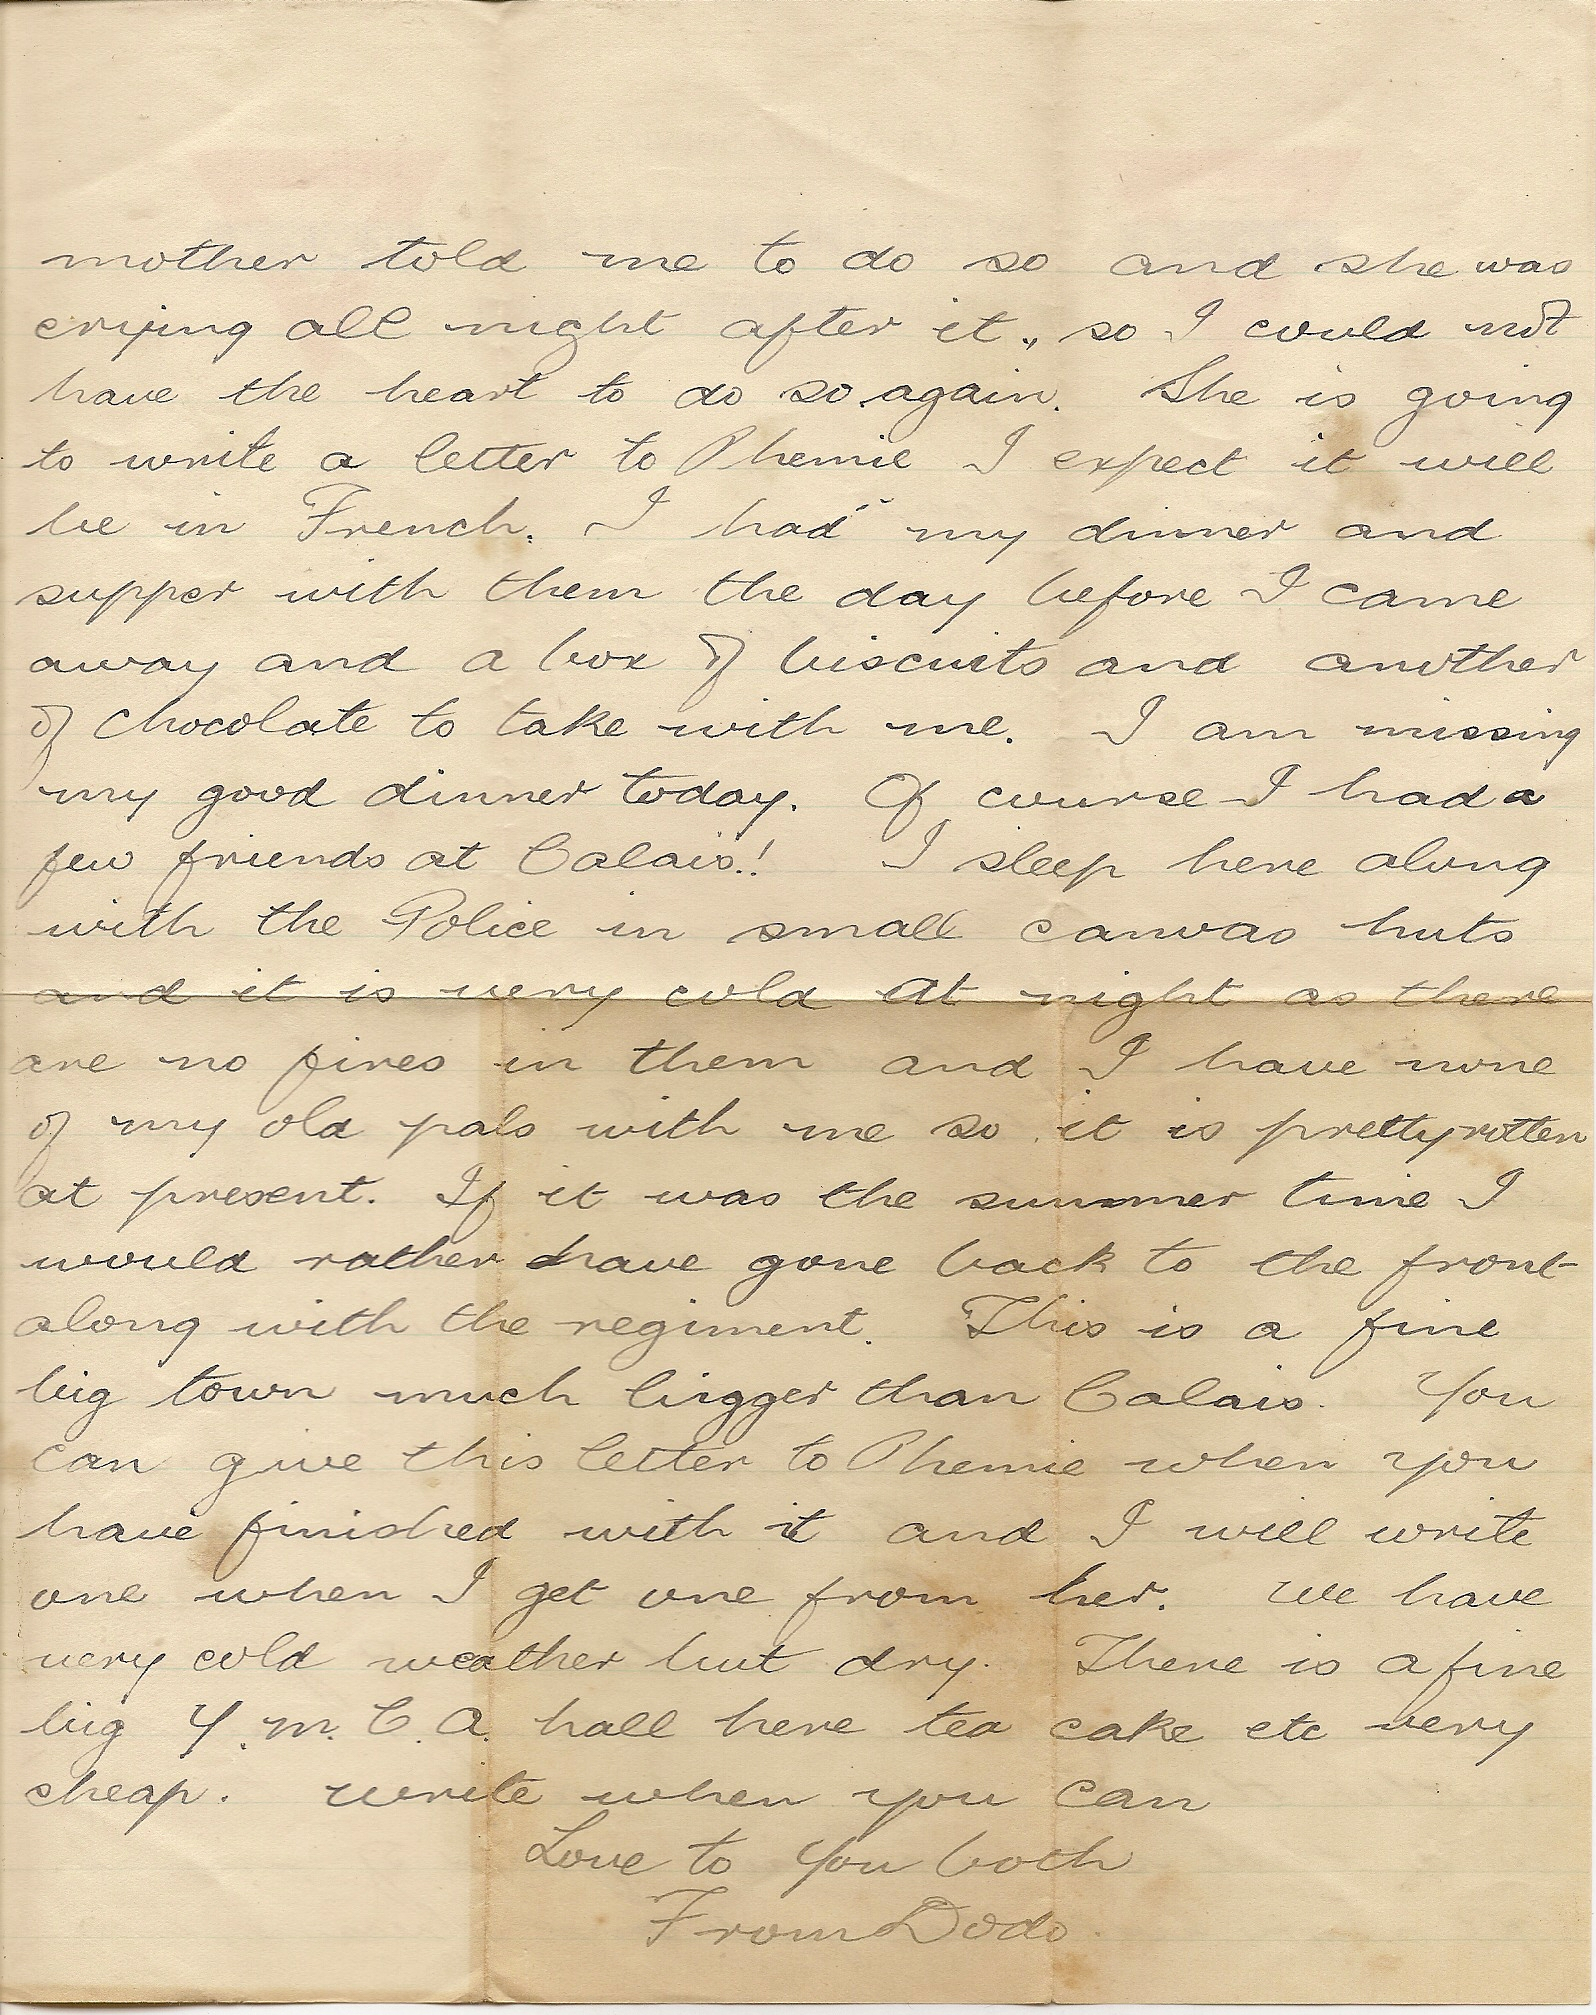 mother told me to do so and she was
crying all night after it, so I could not
have the heart to do so again. She is going
to write a letter to Phemie I expect it will
be in French. I had my dinner and
supper with them the day before I came
away and a box of biscuits and another
of chocolate to take with me. I am missing
my good dinner today. Of course I had a
few friends at Calais!! I sleep here along
with the Police in small canvas huts
and it is very cold at night as there
are no fires in them and I have none
of my old pals with me so it is pretty rotten
at present. If it was the summer time I
would rather have gone back to the front
along with the regiment. This is a fine
big town much bigger than Calais. You
can give this letter to Phemie when you
have finished with it and I will write
one when I get one from her. We have
very cold weather but dry. There is a fine
big Y.M.C.A. hall here tea cake etc very
cheap. Write when you can
Love to You both
From Dodo.